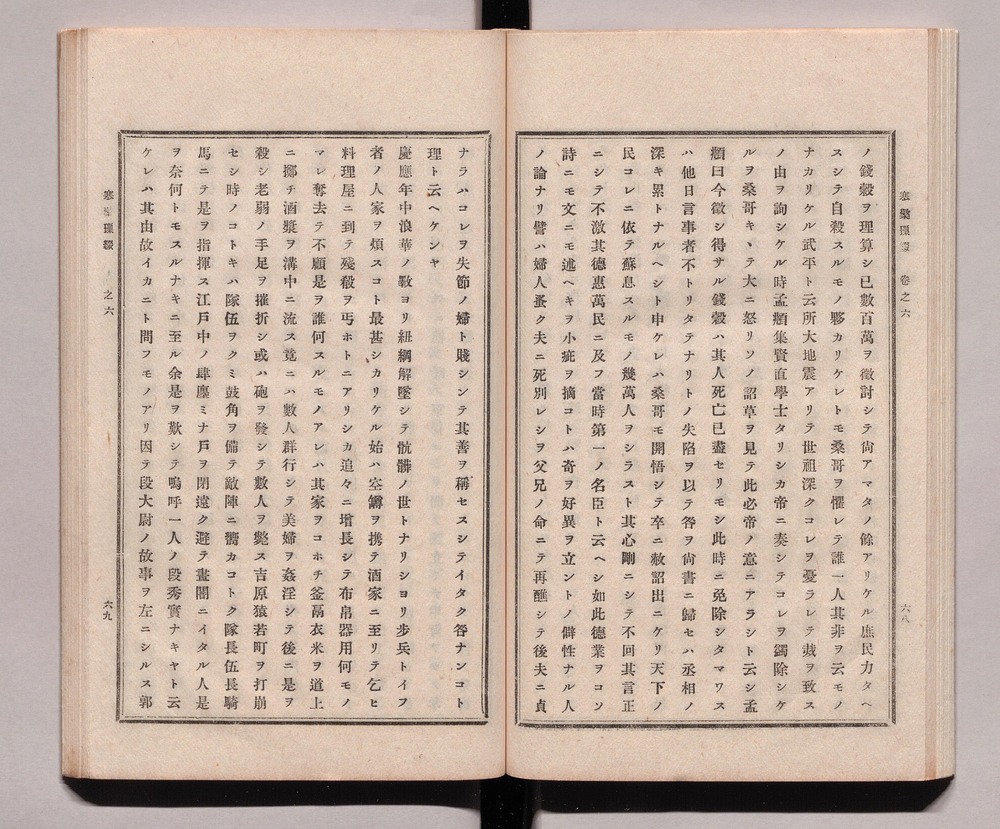 寒檠璅綴 卷之六 六八
ノ錢穀ヲ理算シ已數百萬ヲ徴討シテ尙アマタノ餘アリケル庶民力タヘ
スシテ自殺スルモノ夥カリケレトモ桑哥ヲ懼レテ誰一人其非ヲ云モノ
ナカリケル武平ト云所大地震アリテ世祖深クコレヲ憂ラレテ烖ヲ致ス
ノ由ヲ詢シケル時孟頫集賢直學士タリシカ帝ニ奏シテコレヲ蠲除シケ
ルヲ桑哥キヽテ大ニ怒リソノ詔草ヲ見テ此必帝ノ意ニアラシト云シ孟
頫曰今徴シ得サル錢穀ハ其人死亡已盡セリモシ此時ニ免除シタマワス
ハ他日言事者不トリタテナリトノ失陷ヲ以テ咎ヲ尙書ニ歸セハ丞相ノ
深キ累トナルヘシト申ケレハ桑哥モ開悟シテ卒ニ赦詔出ニケリ天下ノ
民コレニ依テ蘇息スルモノ幾萬人ヲシラスト其心剛ニシテ不回其言正
ニシテ不激其德惠萬民ニ及フ當時第一ノ名臣ト云ヘシ如此德業ヲコン
詩ニモ文ニモ述ヘキヲ小疵ヲ摘コトハ奇ヲ好異ヲ立ントノ僻性ナル人
ノ論ナリ譬ハ婦人蚤ク夫ニ死別レシヲ父兄ノ命ニテ再醮シテ後夫ニ貞
ナラハコレヲ失節ノ婦ト賤シンテ其善ヲ稱セスシテイタク咎ナンコト
理ト云ヘケンヤ
慶應年中浪華ノ敗ヨリ紐綱解墜シテ骯髒ノ世トナリシヨリ步兵トイフ
者ノ人家ヲ煩スコト最甚シカリケル始ハ空罇ヲ携テ酒家ニ至リテ乞ヒ
料理屋ニ到テ殘殽ヲ丐ホトニアリシカ追々ニ增長シテ布帛器用何モノ
マレ奪去テ不顧是ヲ誰何スルモノアレハ其家ヲコホチ釜鬲衣米ヲ道上
ニ擲チ酒漿ヲ溝中ニ流ス竟ニハ數人群行シテ美婦ヲ姦淫シテ後ニ是ヲ
殺シ老弱ノ手足ヲ摧折シ或ハ砲ヲ發シテ數人ヲ斃ス吉原猿若町ヲ打崩
セシ時ノコトキハ隊伍ヲクミ鼓角ヲ備テ敵陣ニ嚮カコトク隊長伍長騎
馬ニテ是ヲ指揮ス江戶中ノ肆廛ミナ戶ヲ閉遠ク避テ晝闇ニイタル人是
ヲ奈何トモスルナキニ至ル余是ヲ歎シテ嗚呼一人ノ段秀實ナキヤト云
ケレハ其由故イカニト問フモノアリ因テ段大尉ノ故事ヲ左ニシルス郭
之六 六九